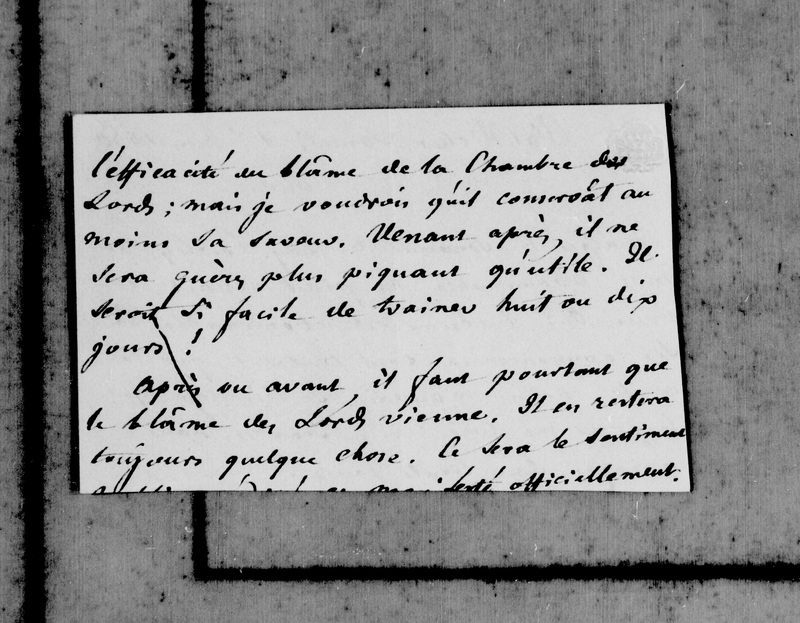 l'efficacité du blâme de la Chambre des
Lords ; mais je voudrois qu'il conservât au
moins sa saveur. Venant après, il ne
sera guères plus piquant qu'utile. Il
seroit si facile de trainer huit ou dix
jours !
Après ou avant, il faut pourtant que
le blâme des Lords vienne. Il en restera
toujours quelque chose. Ce sera le sentiment
manifesté officiellement.